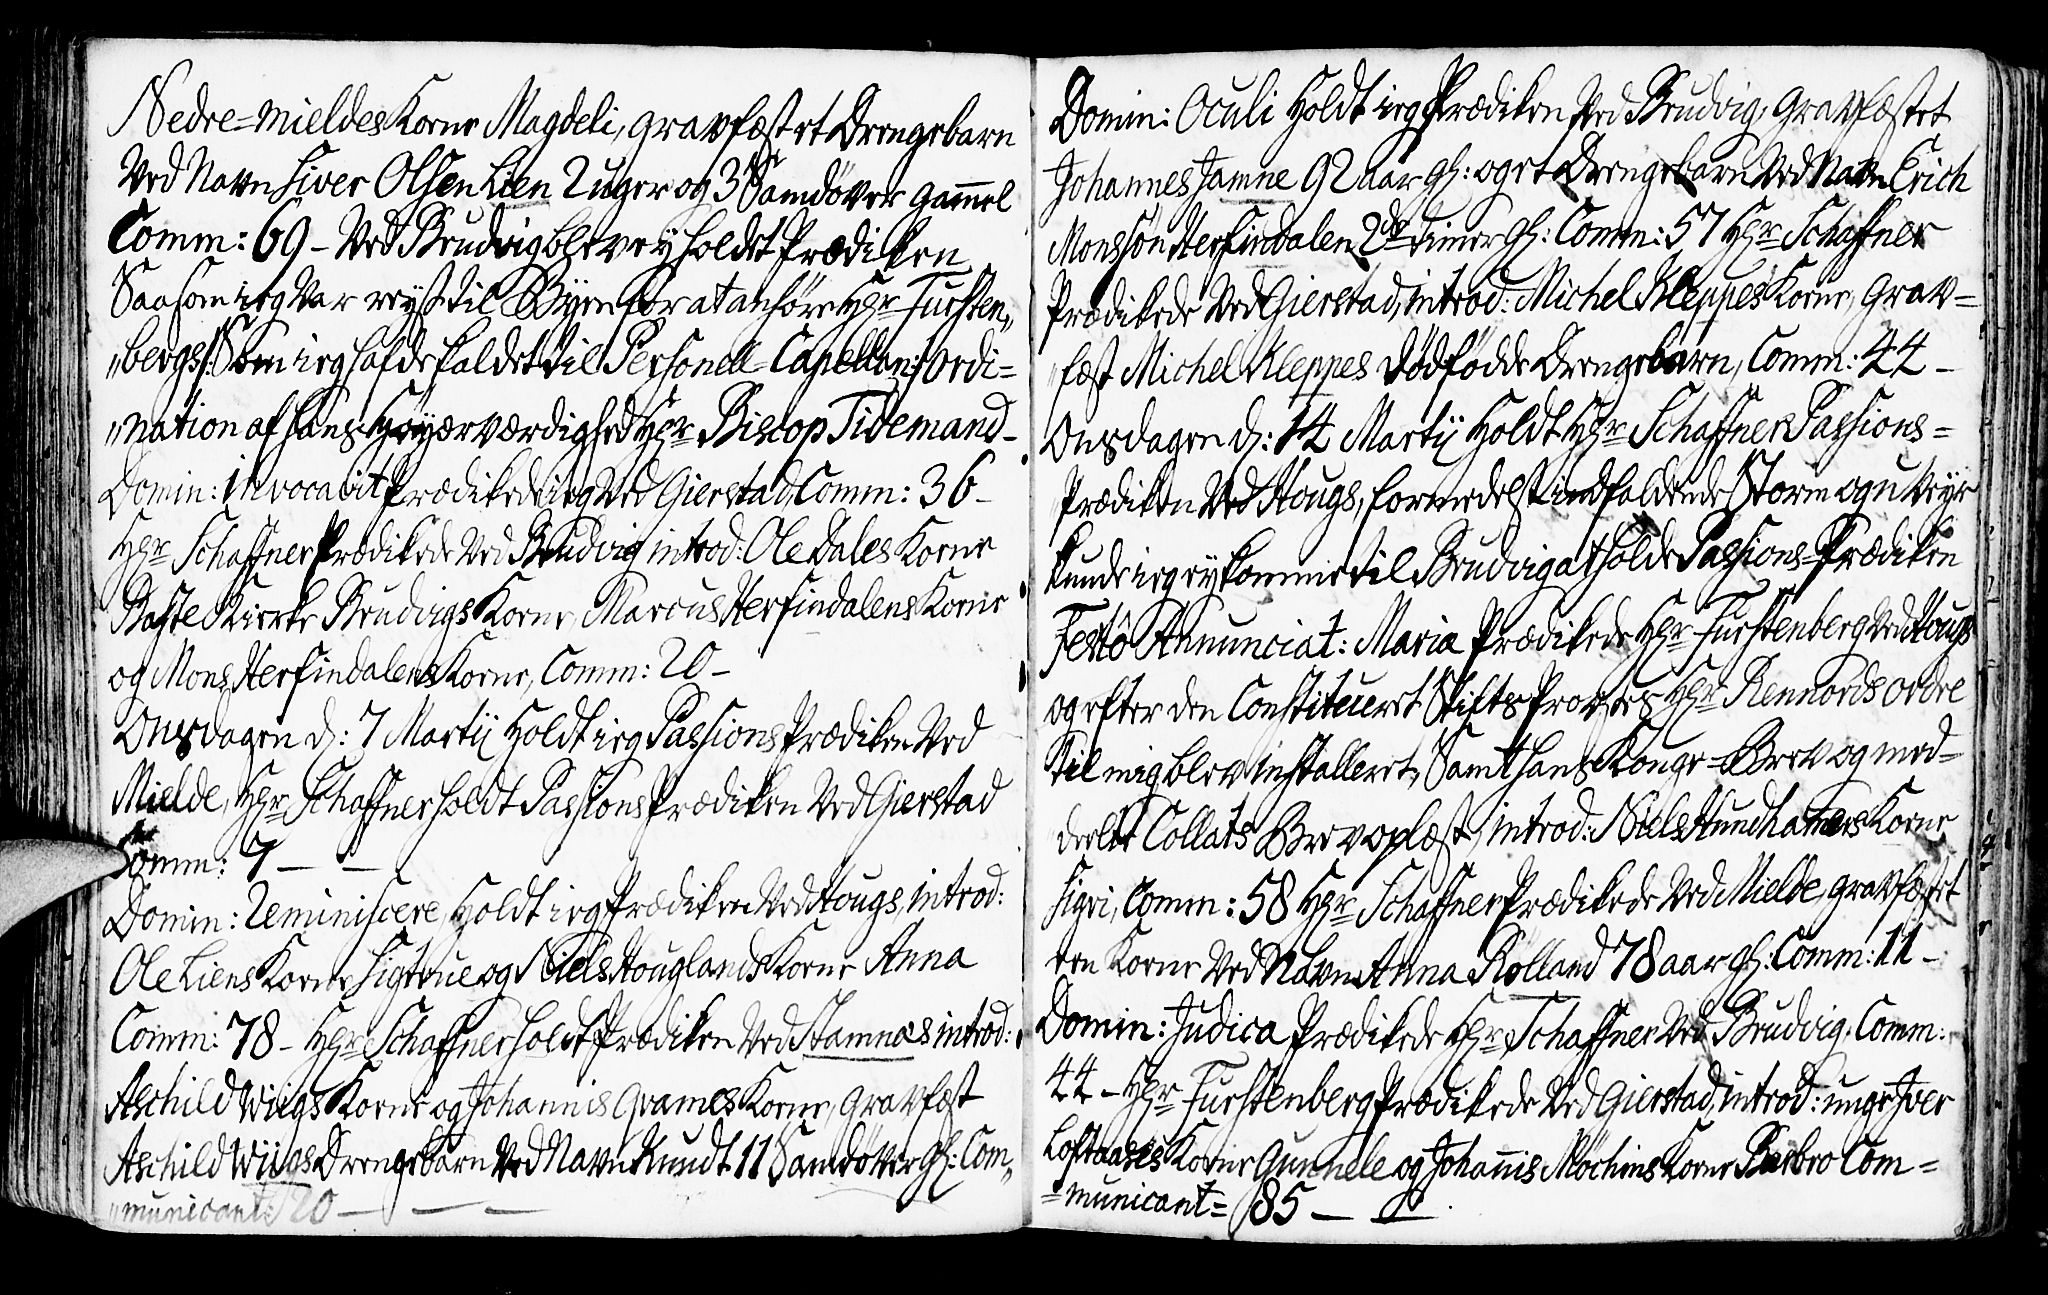 Nedre=Mieldes Kone Magdeli, gravfæstet Drengebarn
Ved Navn Siver Olsen Lien 2 uger og 3 Samdøver gam̅el
Comm: 69 – Ved Brudvig blev ey holdet Prædiken
Saasom ieg var reyst til Byen for at anhøre Hr Fursten„
„bergs /: Som ieg hafde kaldet til Personell=Capellan :/ Ordi=
„nation af hans Høyærværdighed Hr Biscop Tidemand –
Domin: Invocavit Prædikede ieg Ved Gierstad, Comm: 36 –
Hr Schaffner Prædikede Ved Brudvig introd: Ole Dales Kone
Baste Kirke Brudvigs Kone, Marcus Herfindalens Kone
og Mons Herfindalens Kone, Comm: 20 –
Onsdagen d: 7 Martij Holdt ieg Passions Prædiken Ved
Mielde, Hr Schaffner holdt Passions Prædiken Ved Gierstad
Comm: 7 –
Domin: Reminiscere, Holdt ieg Prædiken Ved Hougs, introd:
Ole Liens Kone Sigtrue og Niels Houglands Kone Anna
Comm: 78 – Hr Schaffner holdt Prædiken Ved Stamnæs introd:
Aschild Wiigs Kone og Johannis Qvames Kone, gravfæst
Aschild Wiigs Drengebarn Ved Navn Knudt 11 Samdøver gl: Com„
„municant: 20 –
Domin: Oculi Holdt ieg Prædiken Ved Brudvig, gravfæstet
Johannes Jamne 92 aar gl: og et Drengebarn Ved Navn Erich
Monssøn Herfindalen 2de timer gl: Comm: 57 Hr Schaffner
Prædikede Ved Gierstad, introd: Michel Kleppes Kone, grav=
„fæst Michel Kleppes dødfødde Drengebarn, Comm: 44 –
Onsdagen d: 14 Martij Holdt Hr Schaffner Passions=
Prædiken Ved Hougs, formedelst indfaldende Storm og u Veyr
kunde ieg ey komme til Brudvig at holde Passions=Prædiken
Festô Annunciat: Mariæ Prædikede Hr Furstenberg Ved Hougs
og efter den Constitueret Stifts Provstes Hr Rennords ordre
til mig blev installeret, Samt hans Konge=Brev og med=
deelte Collats Brev oplæst, introd: Niels Hundhamers Kone
Sigri, Comm: 58 Hr Schaffner Prædikede Ved Mielde, gravfæstet
een Kone Ved Navn Anna Rølland 78 aar gl: Comm: 11 –
Domin: Judica Prædikede Hr Schaffner Ved Brudvig, Comm:
44 – Hr Furstenberg Prædikede Ved Gierstad, introd: unge Iver
Loftaases Kone Gunnele og Johan̅is Møchins Kone Barbro Com=
=municant= 85 –